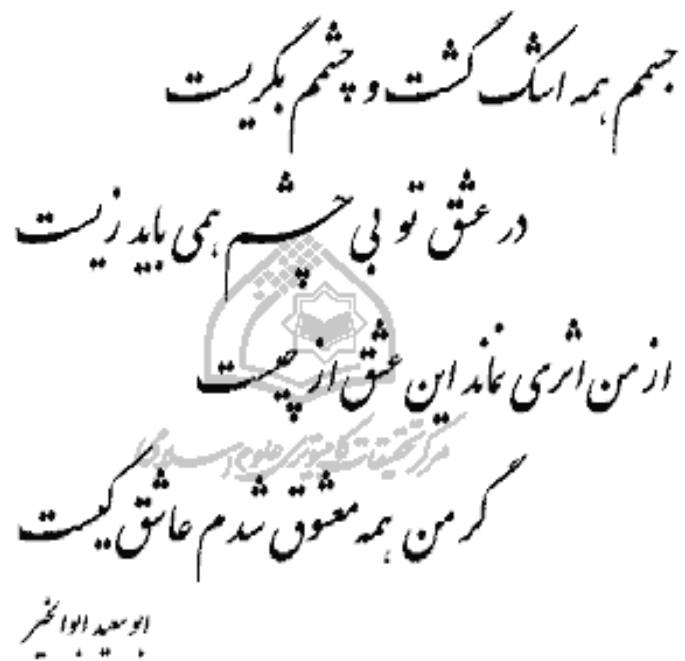 جسمم همه اشک گشت و چشمم بگریست
در عشق تو بی چشم همی باید زیست
از من اثری نماند این عشق از چیست
مرکز تحقیقات کامپیوتری علوم اسلامی
گر من همه معشوق شدم عاشق کیست
ابوسعید ابوالخیر